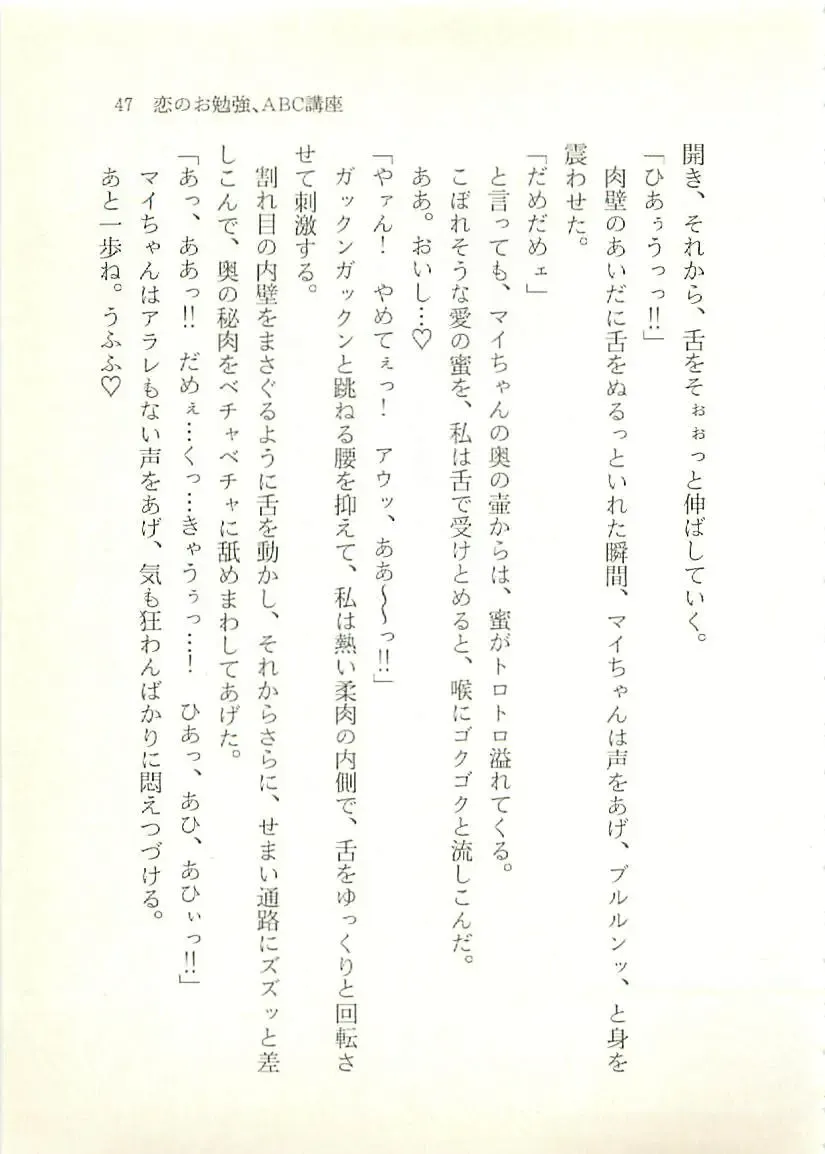 47 恋のお勉強、ABC講座
開き、それから、舌をそぉぉっと伸ばしていく。
「ひあぅうっっ!!」
肉壁のあいだに舌をぬるっといれた瞬間、マイちゃんは声をあげ、ブルルンッ、と身を
震わせた。
「だめだめェ」
と言っても、マイちゃんの奥の壷からは、蜜がトロトロ溢れてくる。
こぼれそうな愛の蜜を、私は舌で受けとめると、喉にゴクゴクと流しこんだ。
ああ。おいし…♡
「やァん！　やめてぇっ！　アウッ、ああ〜〜っ!!」
ガックンガックンと跳ねる腰を抑えて、私は熱い柔肉の内側で、舌をゆっくりと回転さ
せて刺激する。
割れ目の内壁をまさぐるように舌を動かし、それからさらに、せまい通路にズズッと差
しこんで、奥の秘肉をベチャベチャに舐めまわしてあげた。
「あっ、ああっ!!　だめぇ…くっ…きゃうぅっ…！　ひあっ、あひ、あひぃっ!!」
マイちゃんはアラレもない声をあげ、気も狂わんばかりに悶えつづける。
あと一歩ね。うふふ♡